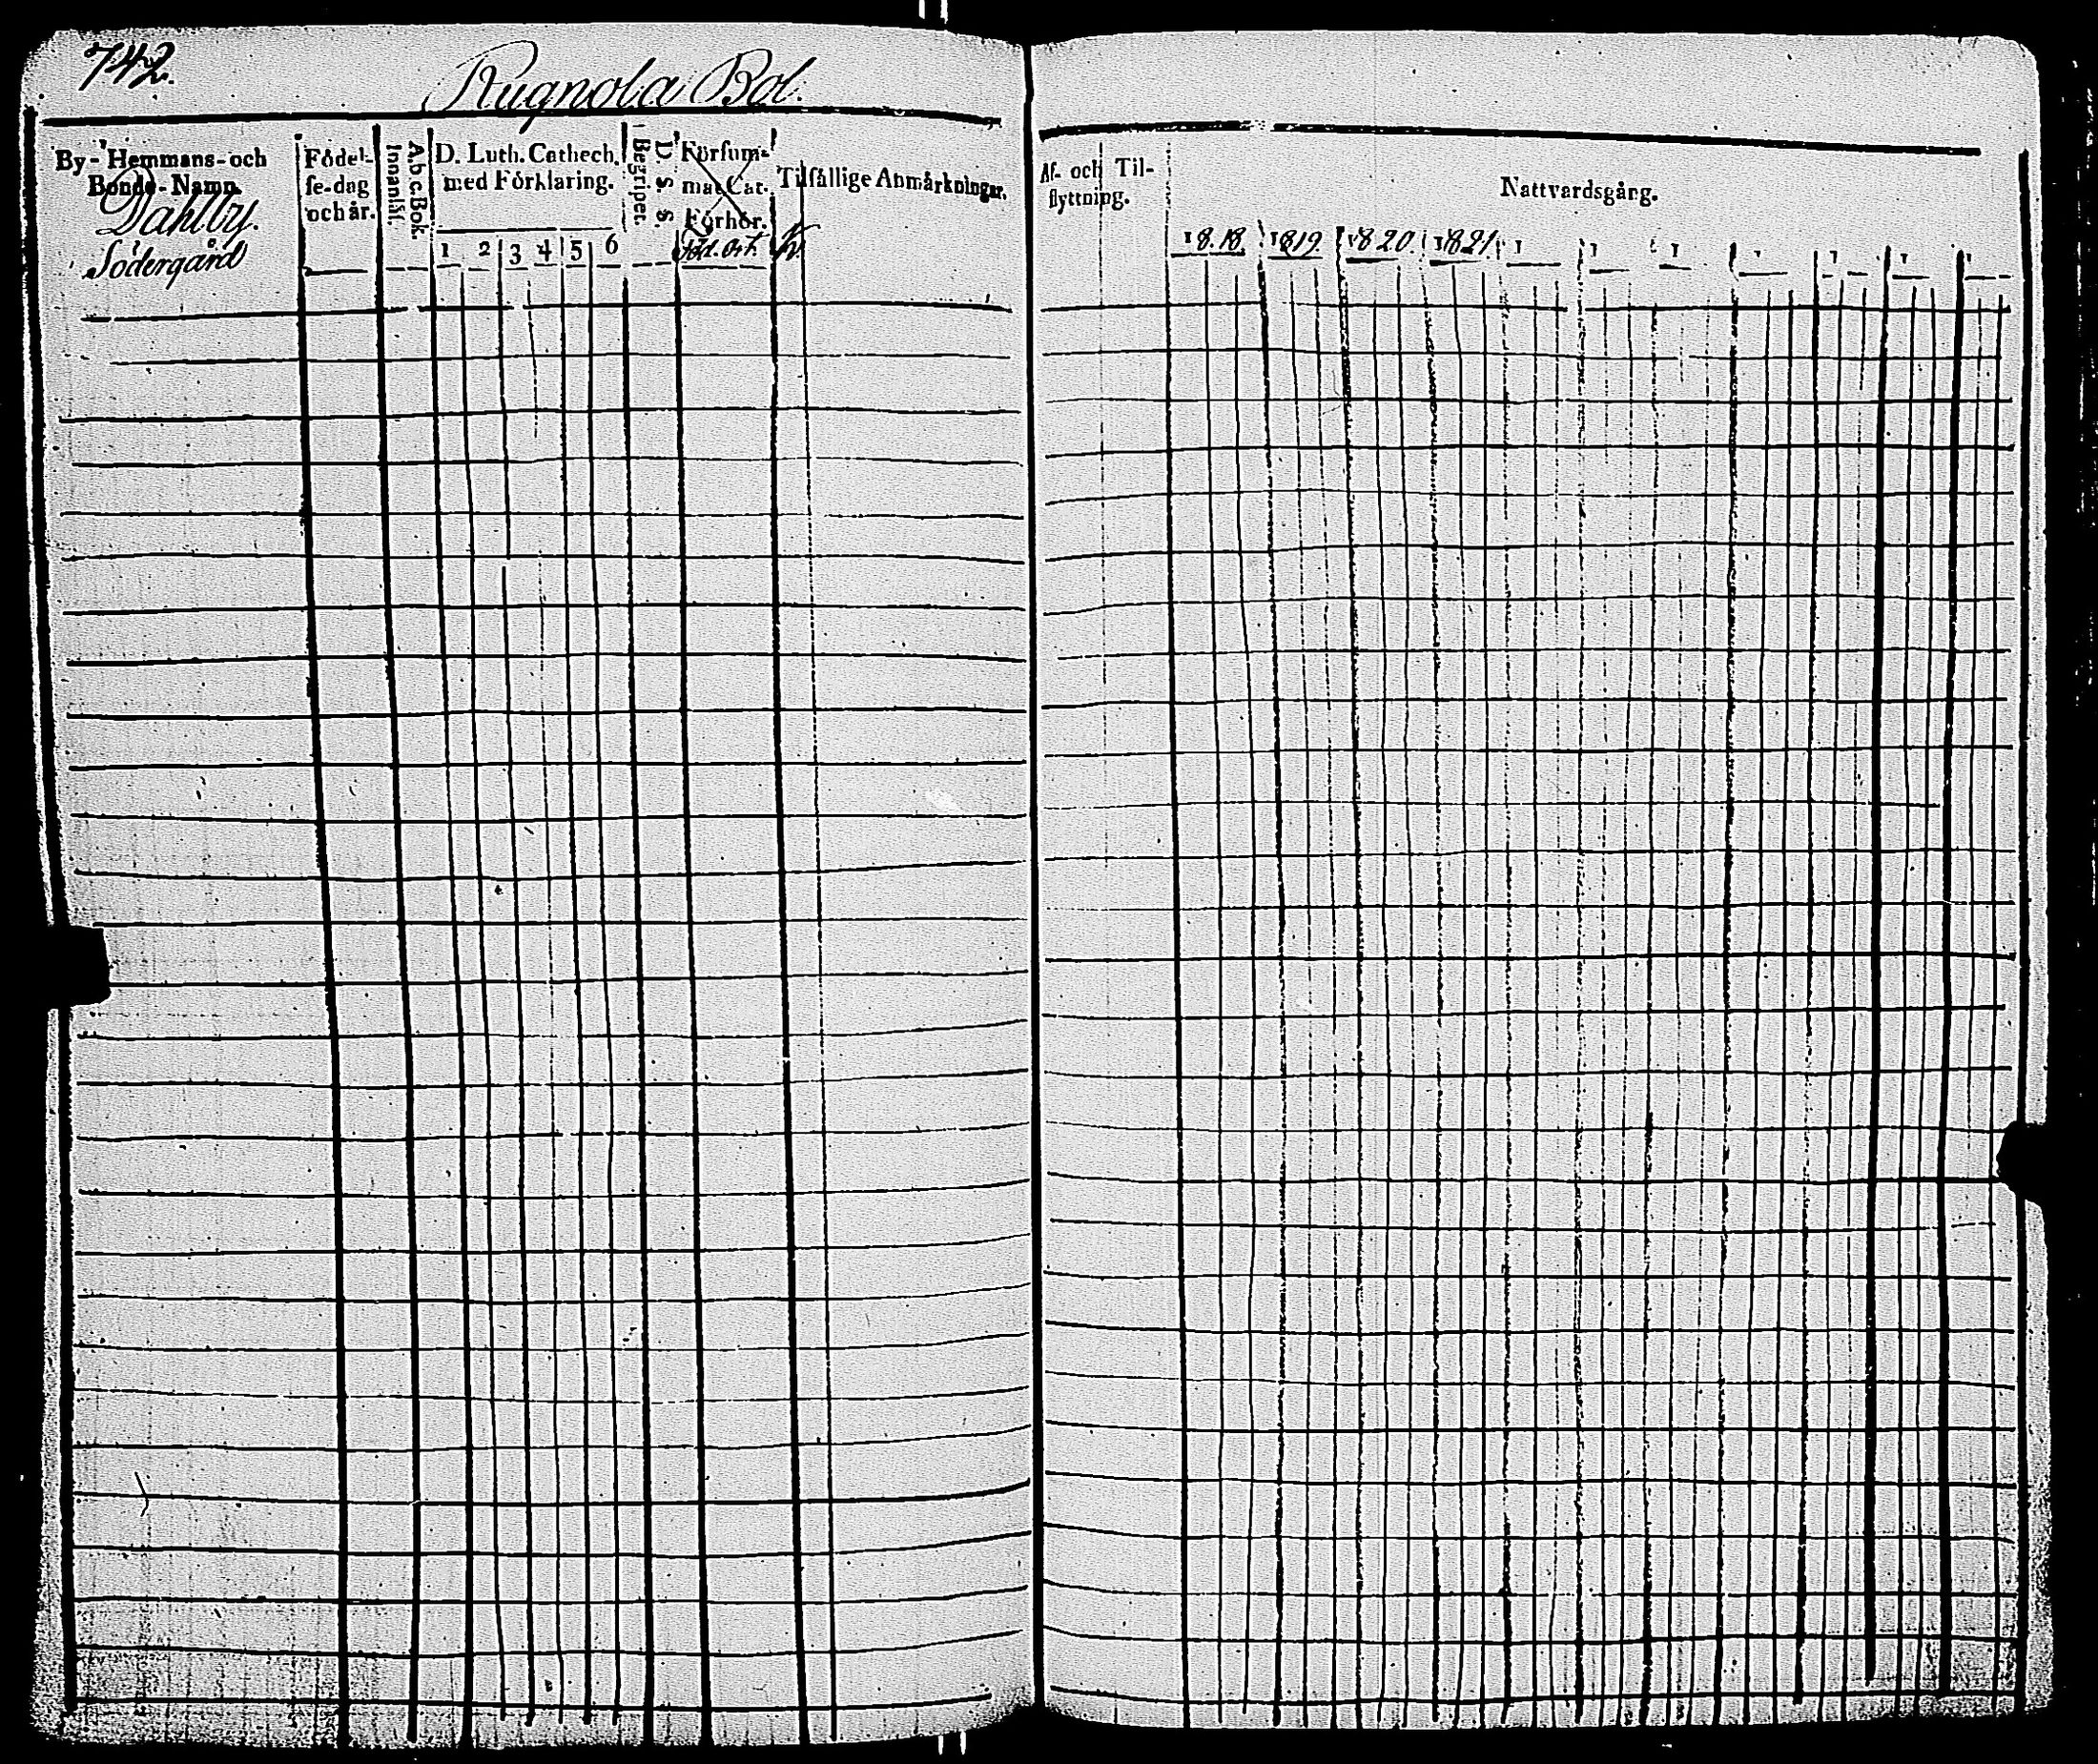 742.
Rugnola Bol.
By- Hemmans- och
Bonde-Namn.
Dahlby.
Södergård
Födel-
se-dag
och år.
A b c Bok.
Innanläs.
D. Luth. Cathech.
med Förklaring.
1 2 3 4 5 6
Begripet.
D. S. S.
Försum-
mat Cat.
Förhör.
Tilfällige Anmärkningar.
Af- och Til-
flyttning.
Nattvardsgång.
1818. 1819 1820 1821. 1 1 1 1 1 1 1